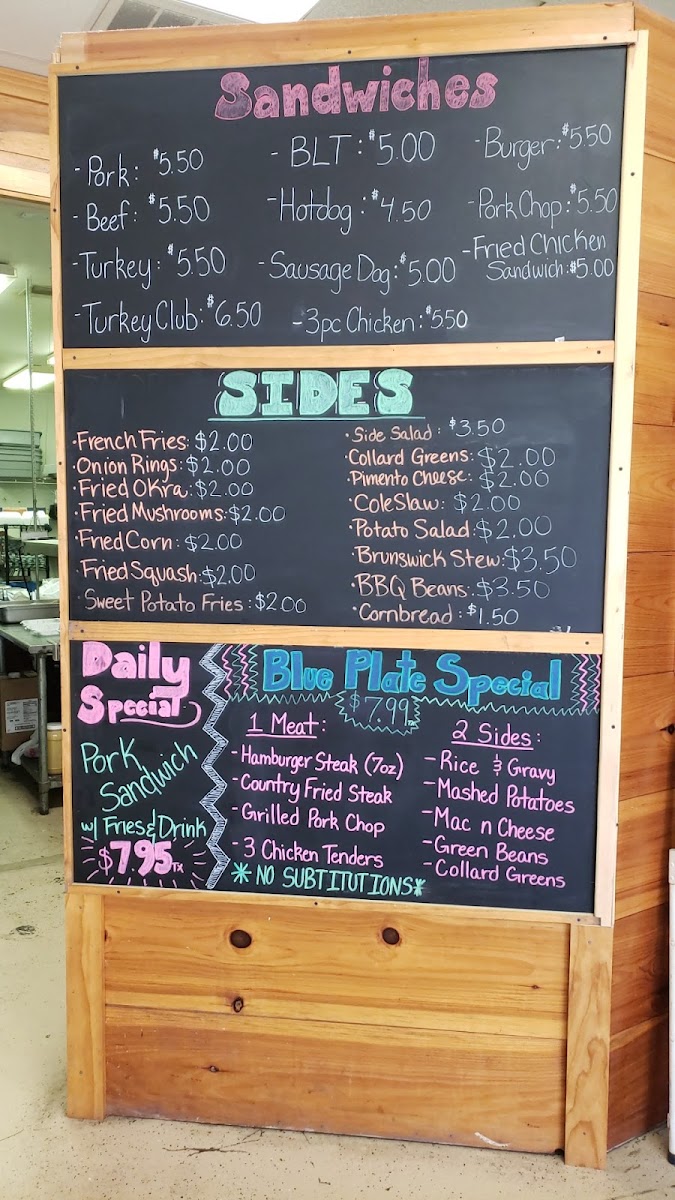 Sandwiches
- Pork: $5.50
- Beef: $5.50
- Turkey: $5.50
- Turkey Club: $6.50
- BLT: $5.00
- Hotdog: $4.50
- Sausage Dog: $5.00
- 3pc Chicken: $5.50
- Burger: $5.50
- Pork Chop: $5.50
- Fried Chicken
Sandwich: $5.00
SIDES
· French Fries: $2.00
· Onion Rings: $2.00
· Fried Okra: $2.00
· Fried Mushrooms: $2.00
· Fried Corn: $2.00
· Fried Squash: $2.00
· Sweet Potato Fries: $2.00
· Side Salad: $3.50
· Collard Greens: $2.00
· Pimento Cheese: $2.00
· Cole Slaw: $2.00
· Potato Salad: $2.00
· Brunswick Stew: $3.50
· BBQ Beans: $3.50
· Cornbread: $1.50
Daily
Special
Pork
Sandwich
w/ Fries & Drink
$7.95 TX
Blue Plate Special
$7.99 TX
1 Meat:
- Hamburger Steak (7oz)
- Country Fried Steak
- Grilled Pork Chop
- 3 Chicken Tenders
2 Sides:
- Rice & Gravy
- Mashed Potatoes
- Mac n Cheese
- Green Beans
- Collard Greens
* NO SUBTITUTIONS *